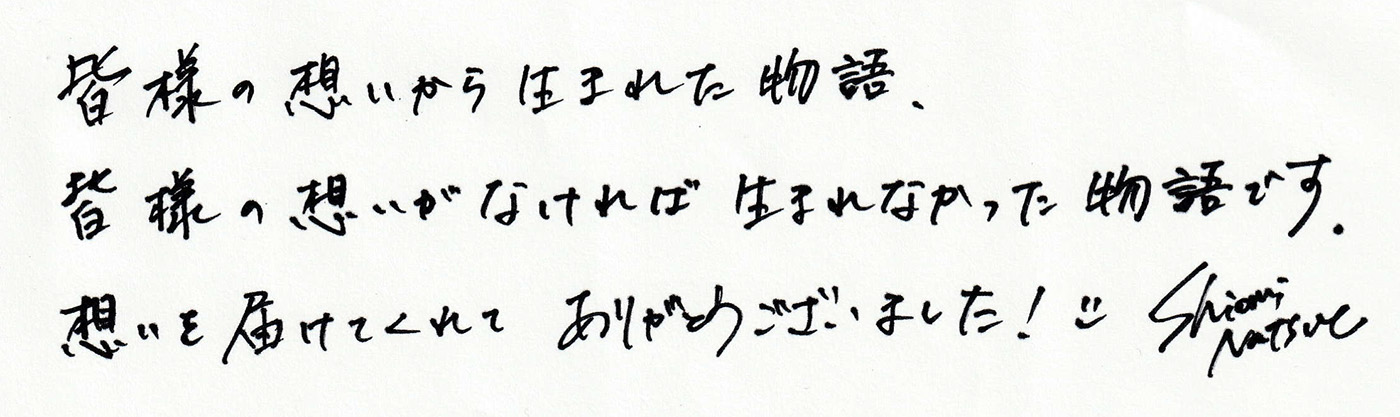 皆様の想いから生まれた物語、
皆様の想いがなければ生まれなかった物語です.
想いを届けてくれて ありがとうございました!
Shiomi
Natsue